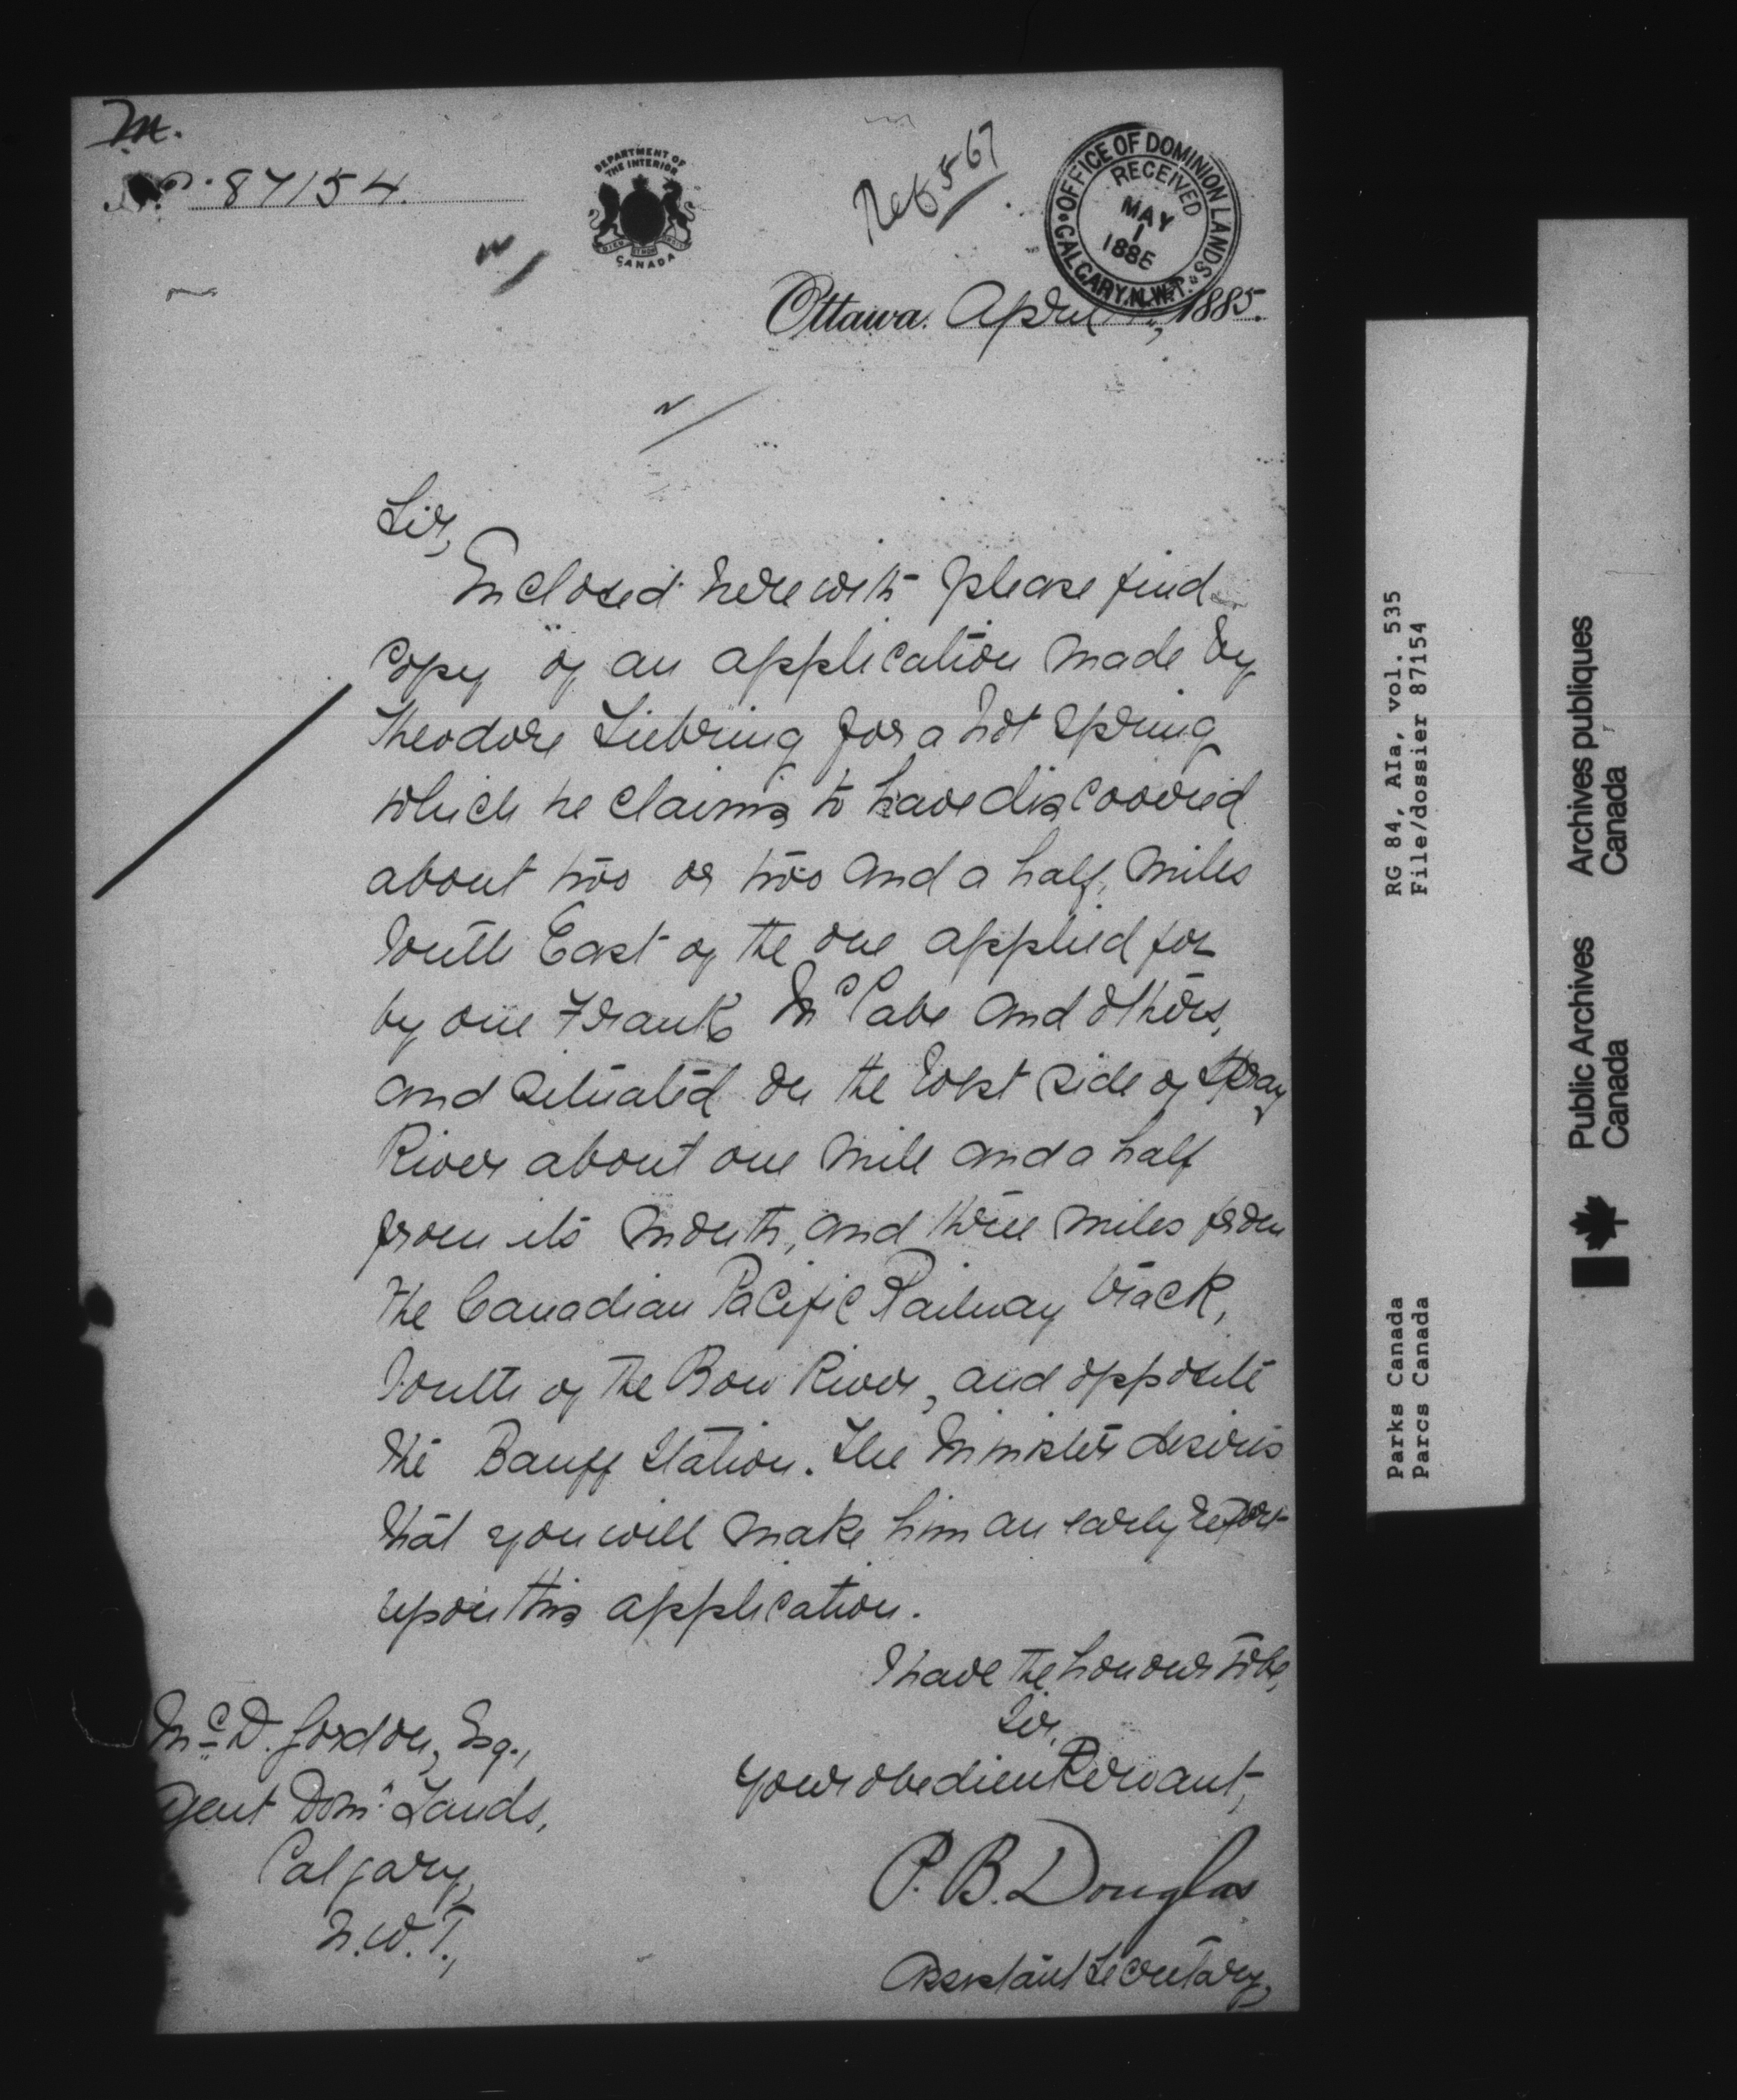 M.
No. 87154.
DEPARTMENT OF
THE INTERIOR
CANADA
Ref 567
OFFICE OF DOMINION LANDS
CALGARY, N.W.T.
RECEIVED
MAY
1
1885
Ottawa. April 1885.
Sir,
Enclosed herewith please find
copy of an application made by
Theodore Siebring for a hot spring
which he claims to have discovered
about two or two and a half miles
South East of the one applied for
by one Frank McCabe and others,
and situated on the West side of Spray
River about one mile and a half
from its mouth, and three miles from
the Canadian Pacific Railway track,
South of the Bow River, and opposite
the Banff Station. The Minister desires
that you will make him an early report
upon this application.
I have the honour to be,
Sir,
Your obedient Servant,
P. B. Douglas
Assistant Secretary,
Mc D. Gordon, Esq.,
Agent Domn. Lands,
Calgary,
N.W.T.,
RG 84, AIa, vol. 535
File/dossier 87154
Parks Canada
Parcs Canada
Public Archives
Canada
Archives publiques
Canada